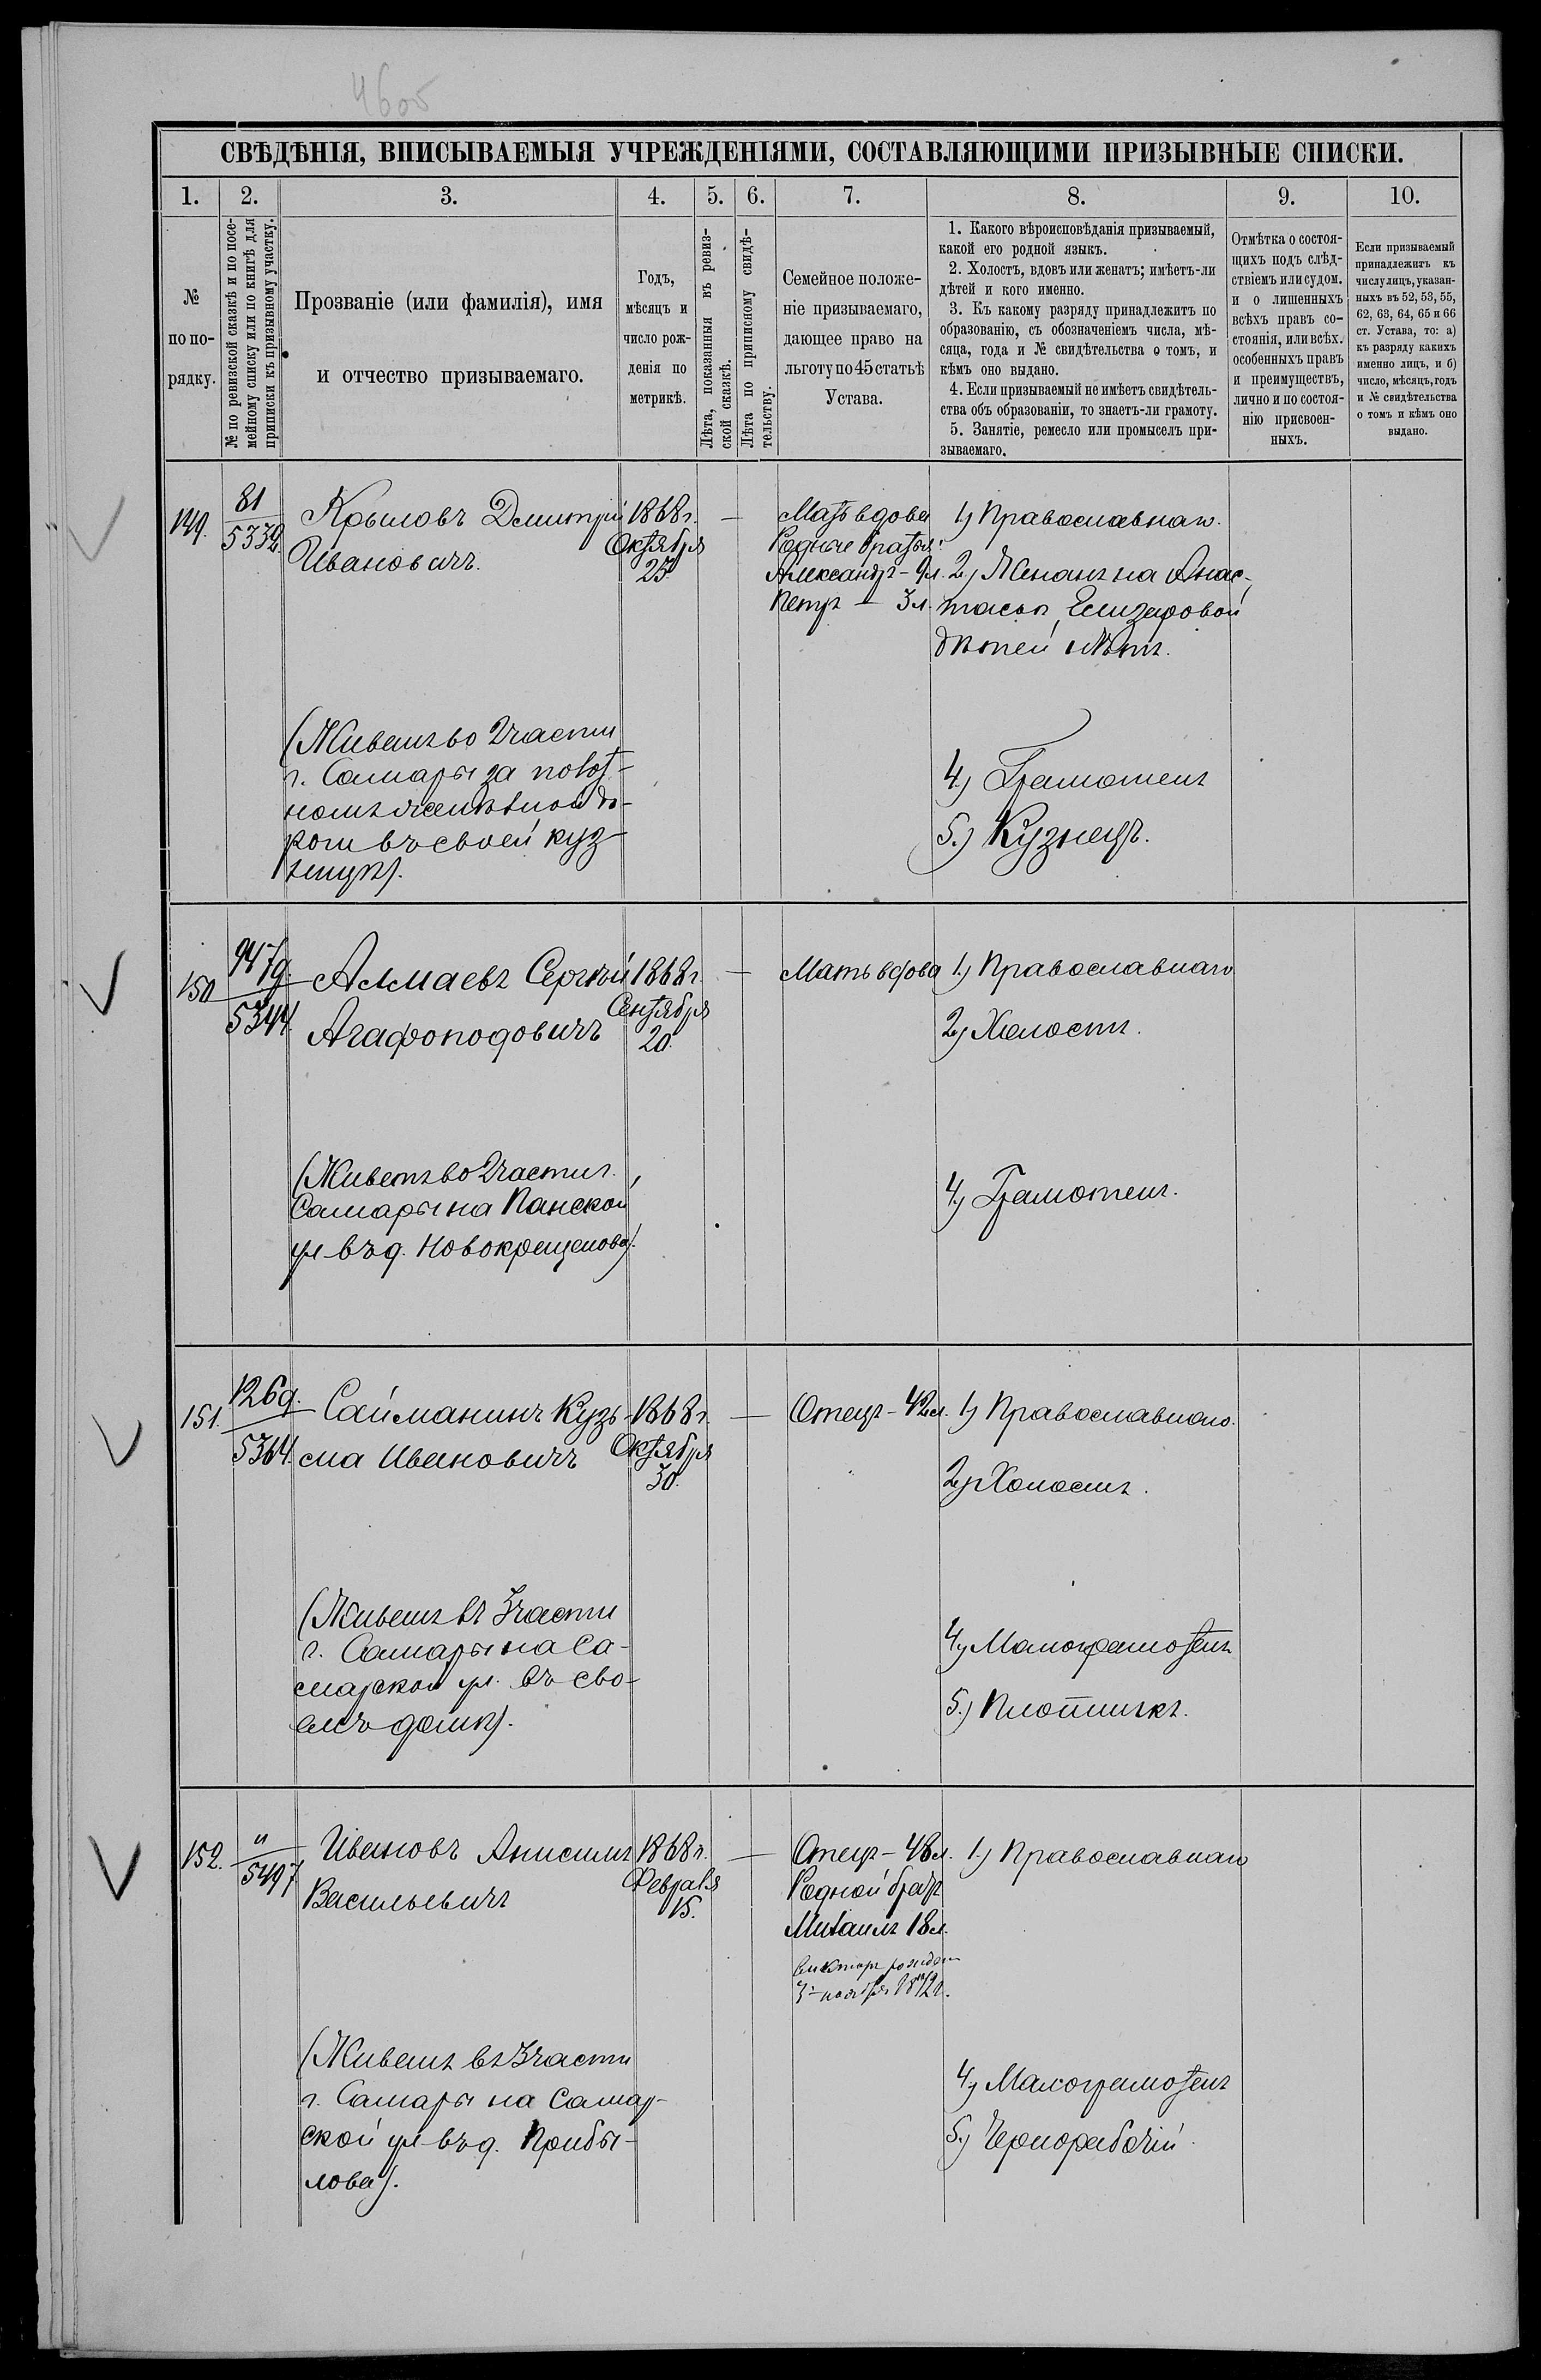 4605
СВѢДѢНІЯ, ВПИСЫВАЕМЫЯ УЧРЕЖДЕНІЯМИ, СОСТАВЛЯЮЩИМИ ПРИЗЫВНЫЕ СПИСКИ.
1. 2. 3. 4. 5. 6. 7. 8. 9. 10.
№
по по-
рядку.
№ по ревизской сказкѣ и по посе-
мейному списку или по книгѣ для
приписки къ призывному участку.
Прозваніе (или фамилія), имя
и отчество призываемаго.
Годъ,
мѣсяцъ и
число рож-
денія по
метрикѣ.
Лѣта, показанныя въ ревиз-
ской сказкѣ.
Лѣта по приписному свидѣ-
тельству.
Семейное положе-
ніе призываемаго,
дающее право на
льготу по 45 статьѣ
Устава.
1. Какого вѣроисповѣданія призываемый,
какой его родной языкъ.
2. Холостъ, вдовъ или женатъ; имѣетъ-ли
дѣтей и кого именно.
3. Къ какому разряду принадлежитъ по
образованію, съ обозначеніемъ числа, мѣ-
сяца, года и № свидѣтельства о томъ, и
кѣмъ оно выдано.
4. Если призываемый не имѣетъ свидѣтель-
ства объ образованіи, то знаетъ-ли грамоту.
5. Занятіе, ремесло или промыселъ при-
зываемаго.
Отмѣтка о состоя-
щихъ подъ слѣд-
ствіемъ или судом.
и о лишенныхъ
всѣхъ правъ со-
стоянія, или всѣх.
особенныхъ правъ
и преимуществъ,
лично и по состоя-
нію присвоен-
ныхъ.
Если призываемый
принадлежитъ къ
числу лицъ, указан-
ныхъ въ 52, 53, 55,
62, 63, 64, 65 и 66
ст. Устава, то: а)
къ разряду какихъ
именно лицъ, и б)
число, мѣсяцъ, годъ
и № свидѣтельства
о томъ и кѣмъ оно
выдано.
149.
81
5332.
Крыловъ Дмитрій
Ивановичъ.
1868 г.
Октября
25.
—
Мать вдова
Родные братья:
Александръ - 9 л.
Петръ - 3 л.
1) Православнаго.
2) Женатъ на Анас-
тасьѣ Елизаровой
дѣтей нѣтъ.
(Живетъ во 2 части
г. Самары за
до-
рогой въ своей куз-
ницѣ).
4.) Грамотенъ
5.) Кузнецъ.
150
5344.
Алмаевъ Сергѣй
Агафоподовичъ
1868 г.
Сентября
20.
—
Мать вдова
1.) Православнаго
2) Холостъ.
(Живетъ во 2 части г.
Самары на Панской
ул въ д. Новокрещенова).
4.) Грамотенъ.
151.
1269.
5364.
Сайманинъ Кузь-
ма Ивановичъ
1868 г.
Октября
30.
—
Отецъ - 42 л.
1) Православнаго.
2) Холостъ.
(Живетъ въ 3 части
г. Самары на Са-
марской ул. въ сво-
емъ домѣ).
4) Малограмотенъ
5.) Плотникъ.
152.
"
5497
Ивановъ Анисимъ
Васильевичъ
1868 г.
Февраля
15.
—
Отецъ - 48 л.
Родной братъ
Михаилъ 18 л.
3 ноября 1872 г.
1.) Православнаго
(Живетъ въ 3 части
г. Самары на Самар-
ской ул въ д. Прибы-
лова).
4) Малограмотенъ
5.) Чернорабочій.